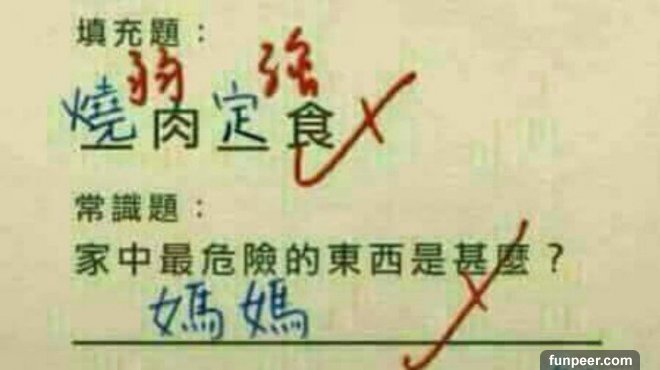 填充題：
弱 強
燒肉定食
常識題：
家中最危險的東西是甚麼？
媽媽
funpeer.com